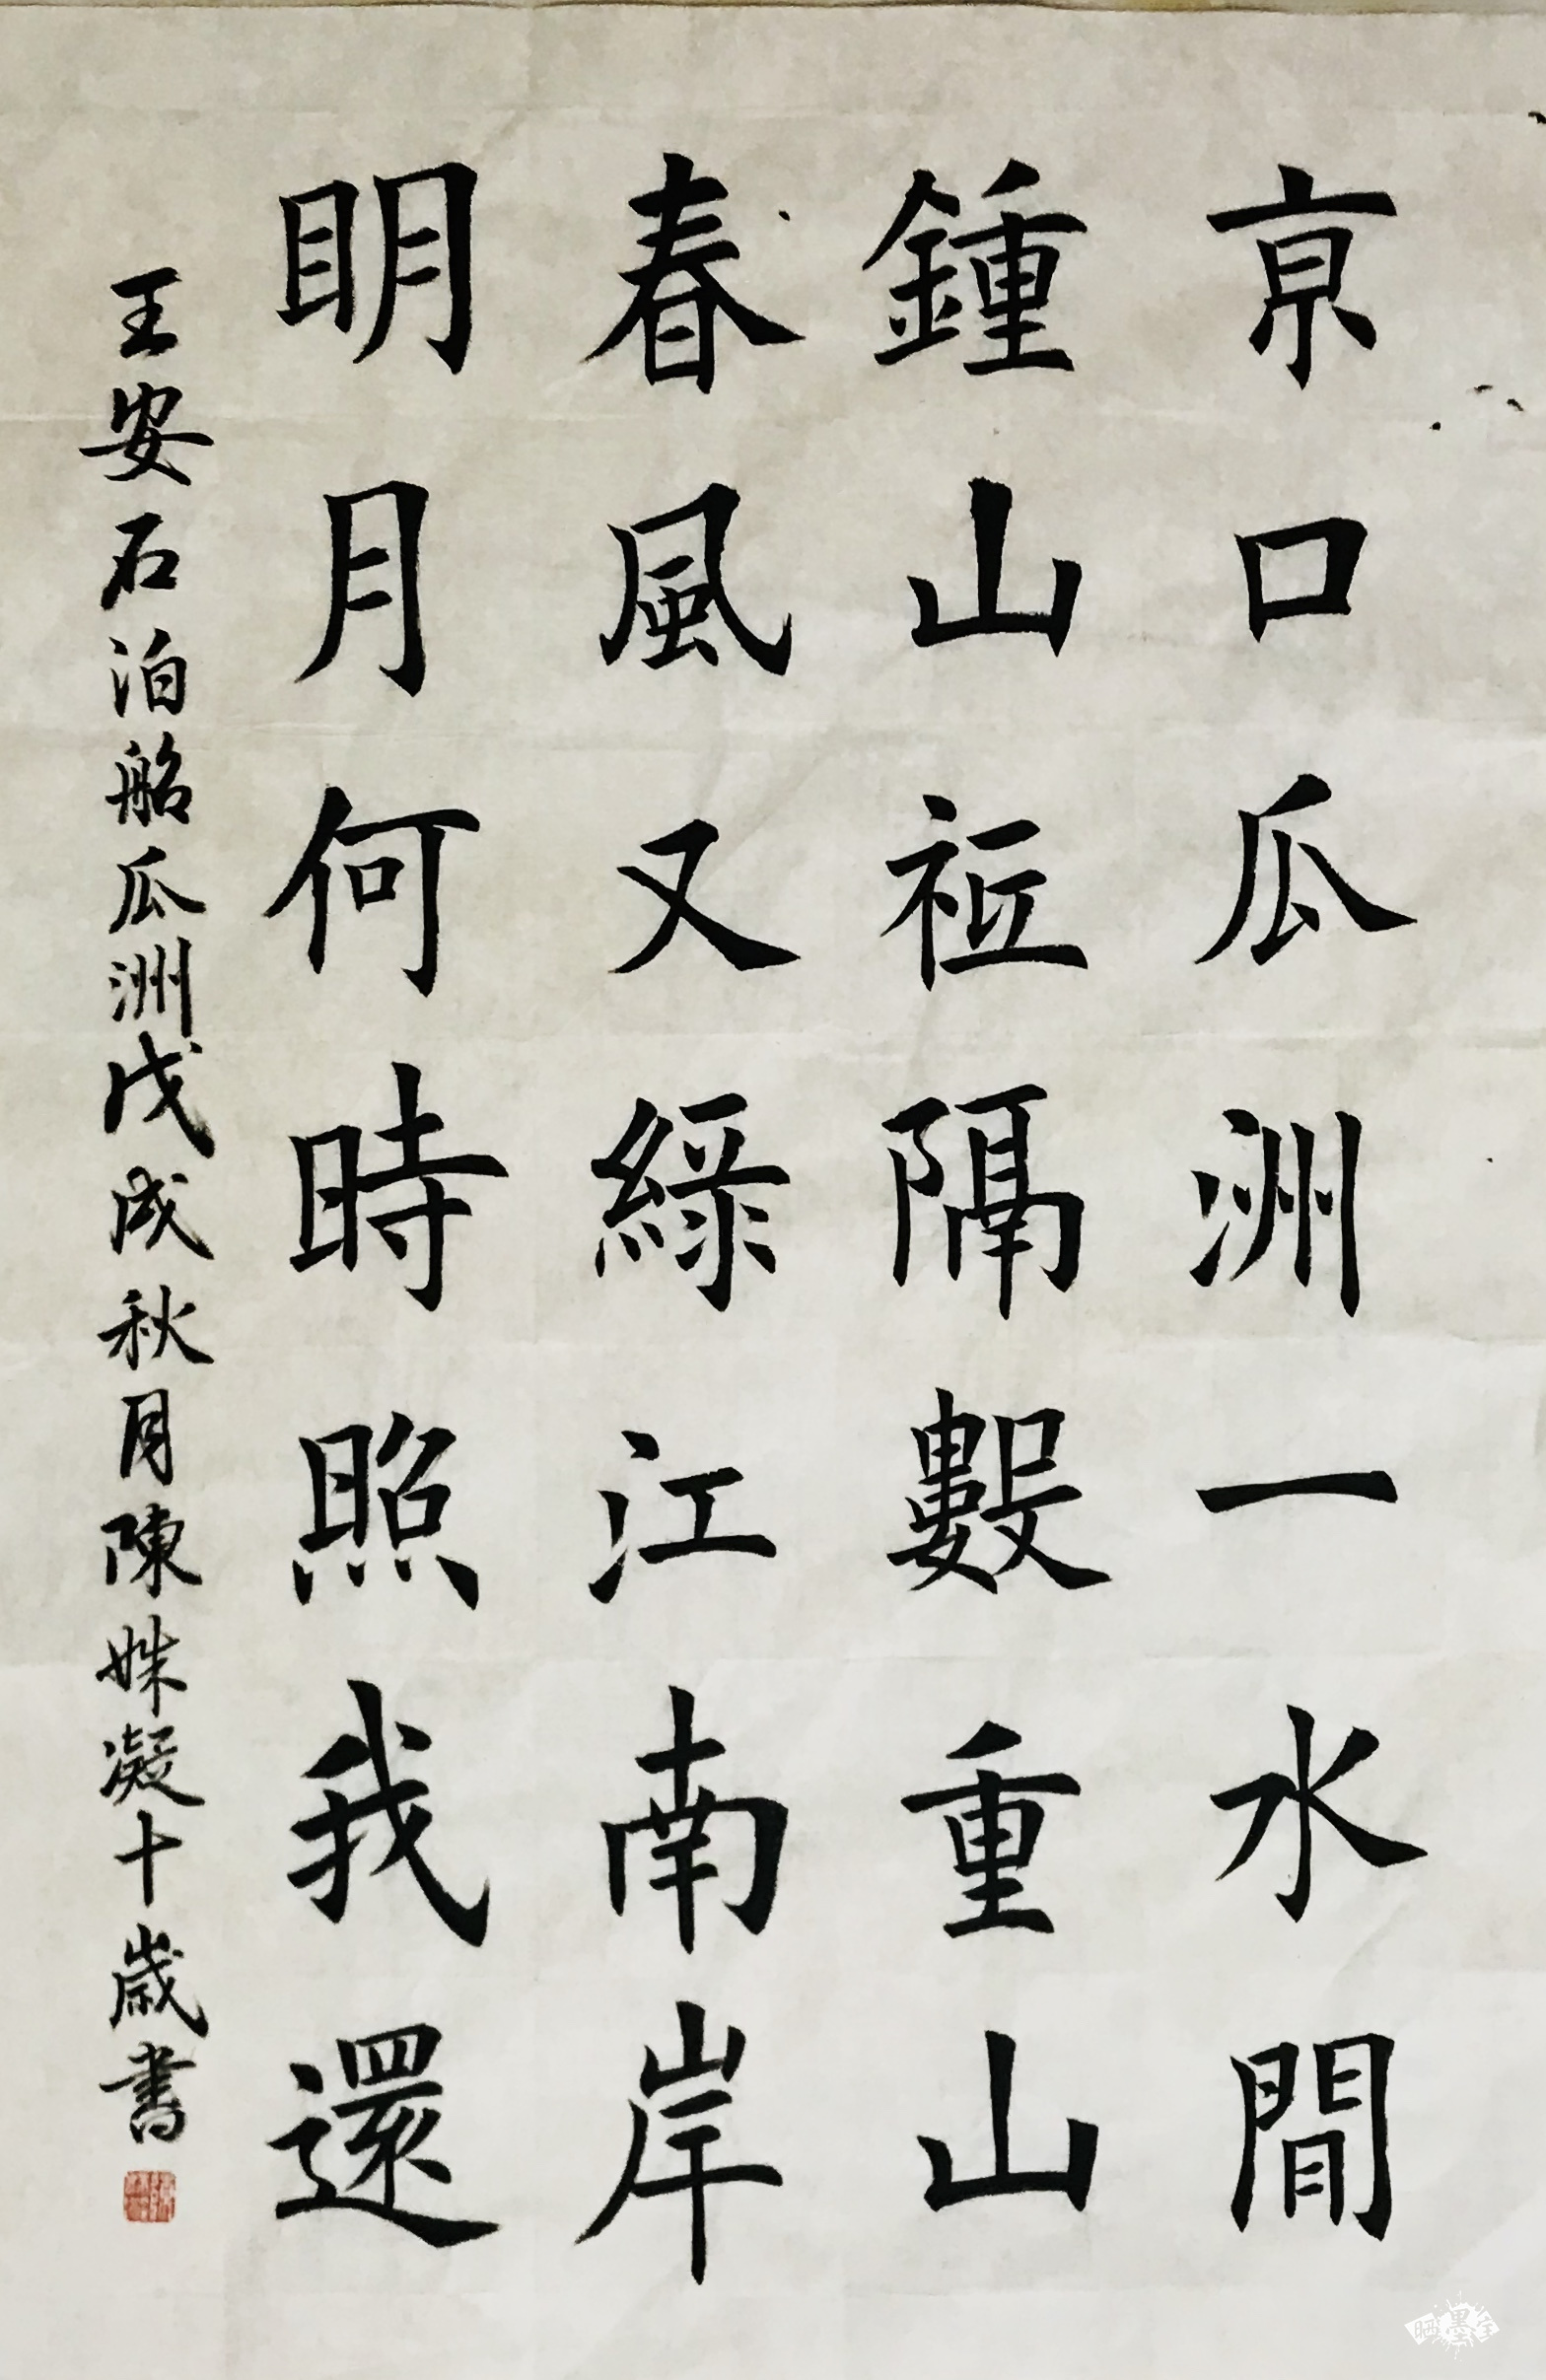 京口瓜洲一水間
鍾山祗隔數重山
春風又綠江南岸
明月何時照我還
王安石泊船瓜洲戊戌秋月陳姝凝十歲書
晒墨宝